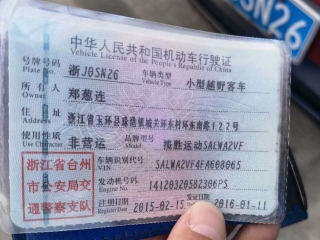 JØSN26
中华人民共和国机动车行驶证
Vehicle License of the People's Republic of China
号牌号码 浙JØSN26 车辆类型 小型越野客车
Plate No. Vehicle Type
所有人 郑慈连
Owner
住址 浙江省玉环县珠港镇城关环东村环东南路122号
Address
使用性质 非营运 品牌型号 揽胜运动SALWA2VF
Use Character Model
浙江省台州市公安局交通警察支队
车辆识别代号 SALWA2VF4FA608065
VIN
发动机号码 14120320582306PS
Engine No.
注册日期 2015-02-15 发证日期 2016-01-11
Register Date Issue Date